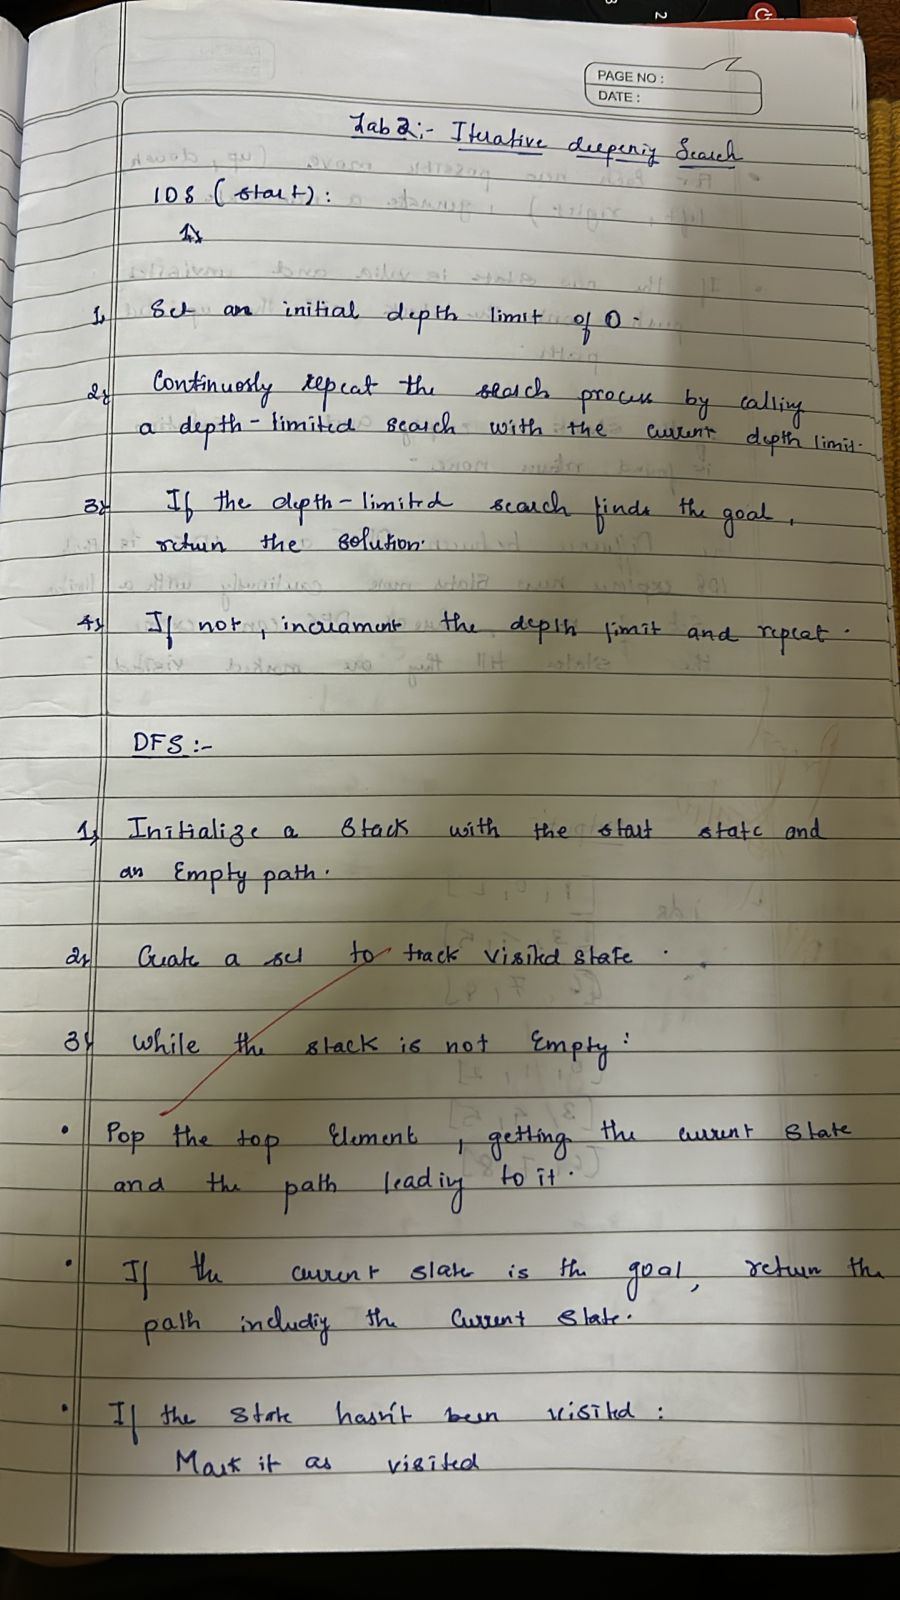 PAGE NO :
DATE :
Lab 2:- Iterative deepenig Search
IDS (start):
1. Set an initial depth limit of 0.
2. Continuosly repeat the search process by calling
a depth-limited search with the current depth limit.
3. If the depth-limited search finds the goal,
return the solution.
4. If not, increament the depth limit and repeat.
DFS :-
1. Initialize a Stack with the start state and
an Empty path.
2. Create a set to track visited state.
3. While the stack is not Empty:
• Pop the top Element, getting the current state
and the path leading to it.
• If the current state is the goal, return the
path includig the Current State.
• If the state hasn't been visited:
Mark it as visited